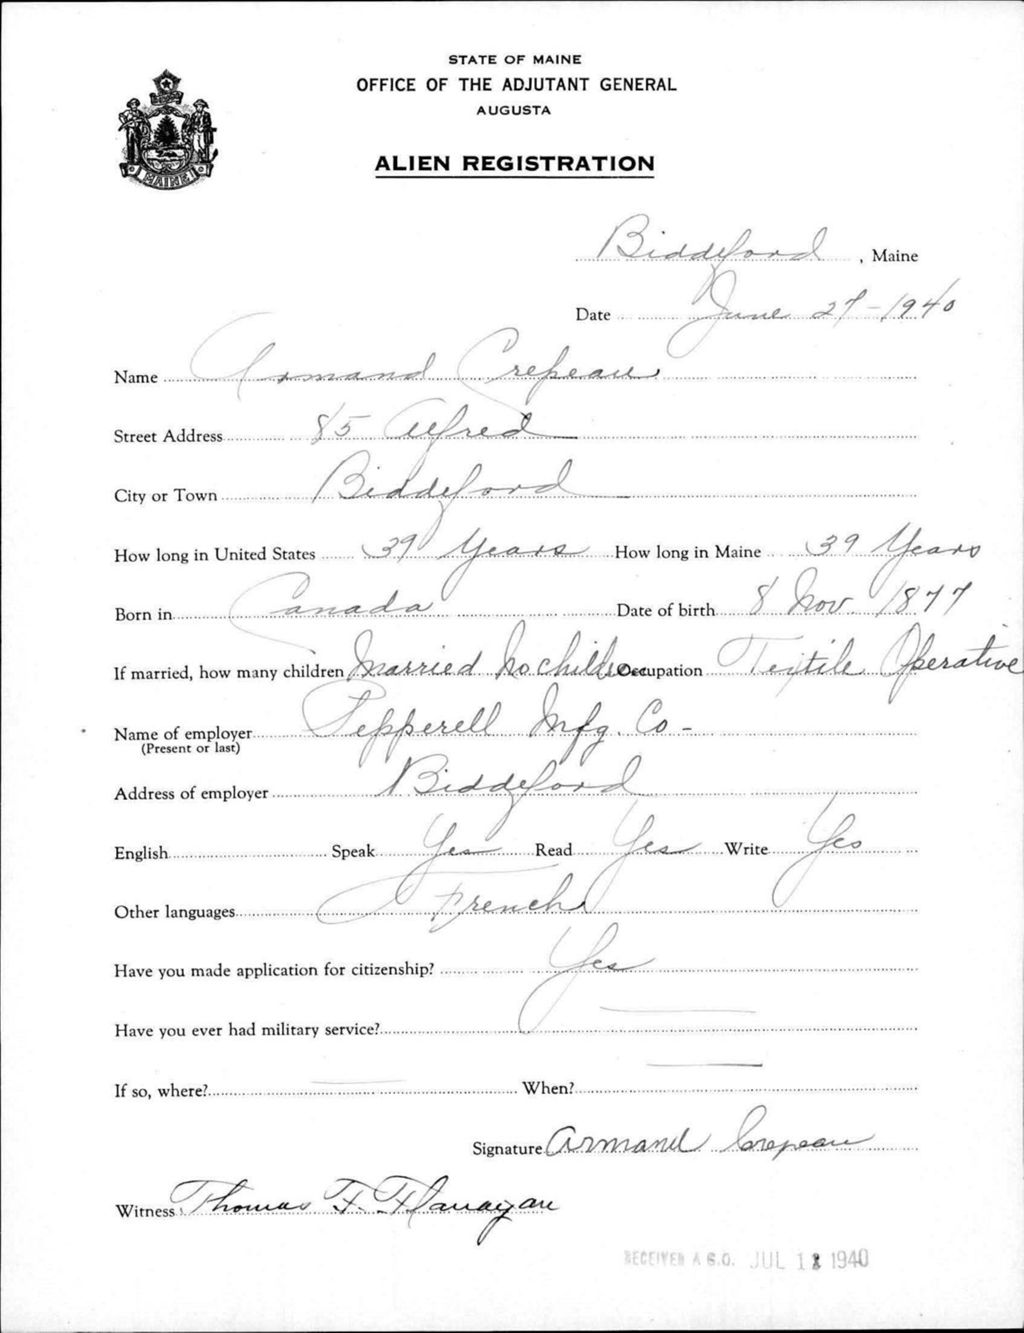 STATE OF MAINE
OFFICE OF THE ADJUTANT GENERAL
AUGUSTA
MAINE
ALIEN REGISTRATION
Biddeford, Maine
Date June 27-1940
Name Armand Crepeau
Street Address 85 Alfred
City or Town Biddeford
How long in United States 39 Years How long in Maine 39 Years
Born in Canada Date of birth 8 Nov 1877
If married, how many children Married No children Occupation Textile Operative
Name of employer Pepperell Mfg. Co-
(Present or last)
Address of employer Biddeford
English Speak Yes Read Yes Write Yes
Other languages French
Have you made application for citizenship? Yes
Have you ever had military service? —
If so, where? — When? —
Signature Armand Crepeau
Witness Thomas F. Flanagan
RECEIVED A.G.O. JUL 1 1940